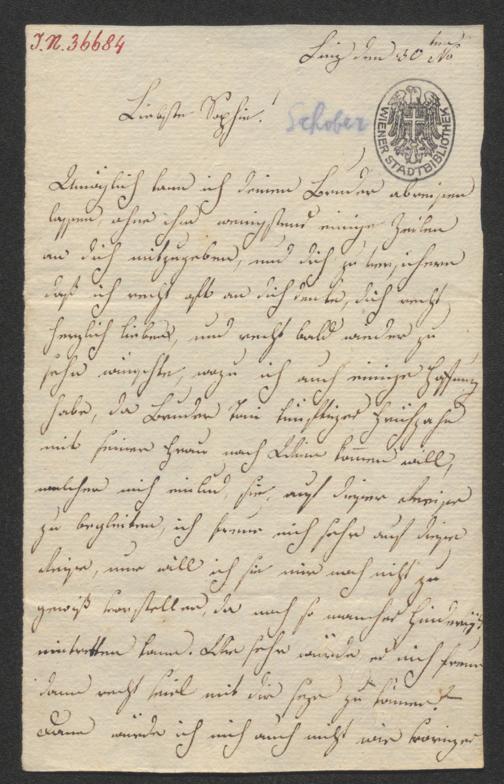 J.N. 36684
Linz den 30ten No
Liebste Sophie!
Schober
WIENER STADTBIBLIOTHEK
Unmöglich kann ich deinen Bruder abreisen
lassen ohne ihm wenigstens einige Zeilen
an dich mitzugeben, und dich zu versichern
daß ich recht oft an dich denke, dich recht
herzlich liebe, und recht bald wieder zu
sehn wünschte, wozu ich auch einige Hoffnung
habe, da Bruder künftiges Frühjahr
mit seiner Frau nach Wien kommen will,
welcher mich einlud, sie auf dieser Reise
zu begleiten, ich freue mich sehr auf diese
Reise, nur will ich sie mir noch nicht zu
gewiß vorstellen, da noch so manches Hinderniß
eintretten kann. Wie sehr würde es mich freuen
dann recht viel mit dir seyn zu können!
Dann würde ich mich auch nicht wie voriges